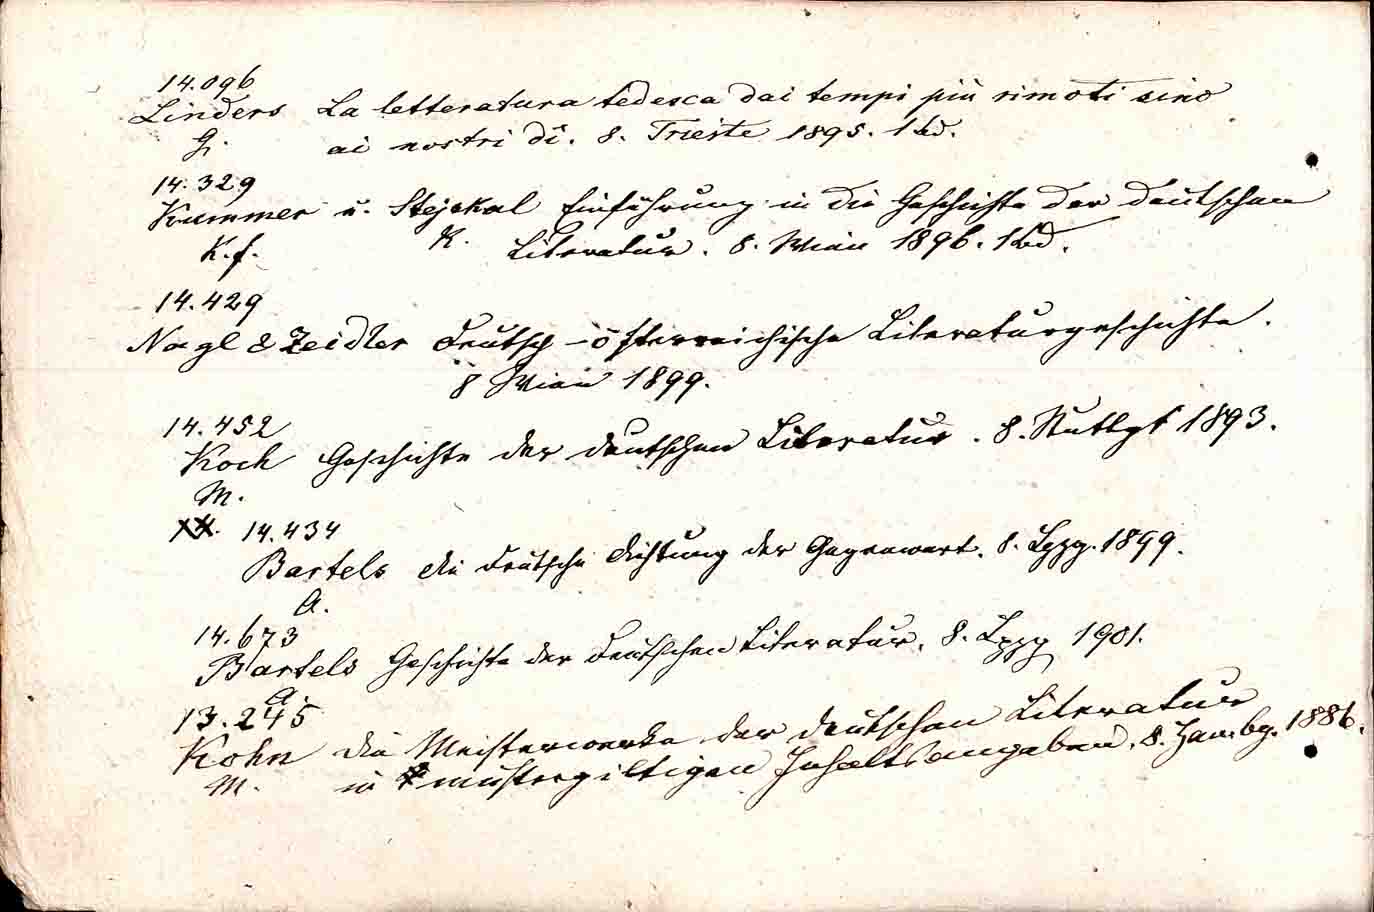 14.096
Linders La letteratura tedesca dai tempi più rimoti sino
G. ai nostri dì. 8. Trieste 1895. 1 Bd.
14.329
Kummer u. Stejskal Einführung in die Geschichte der deutschen
K.f. K. Literatur. 8. Wien 1896. 1 Bd.
14.429
Nagl & Zeidler Deutsch-österreichische Literaturgeschichte.
8 Wien 1899.
14.452
Koch Geschichte der deutschen Literatur. 8. Stuttgt 1893.
M.
14.434
Bartels die deutsche Dichtung der Gegenwart. 8. Lpzg. 1899.
A.
14.673
Bartels Geschichte der deutschen Literatur. 8. Lpzg 1901.
A.
13.245
Kohn die Meisterwerke der deutschen Literatur
M. in mustergiltigen Inhaltsangaben. 8. Hambg. 1886.